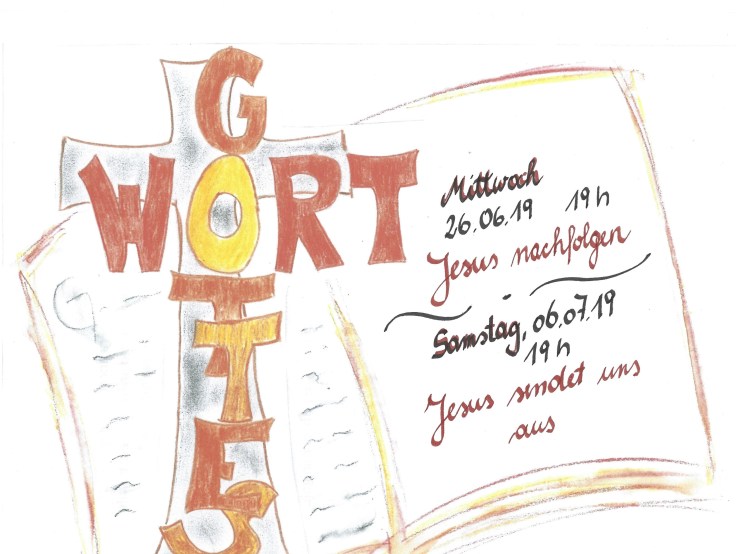 GOTTES
WORT
Mittwoch
26.06.19 19h
Jesus nachfolgen
Samstag, 06.07.19
19h
Jesus sendet uns
aus